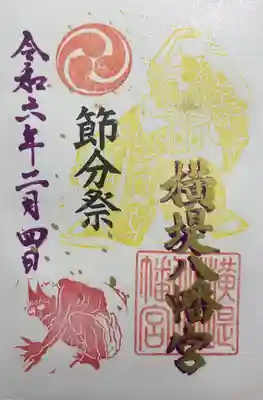 横堤八幡宮
横堤
幡宮
節分祭
令和六年二月四日